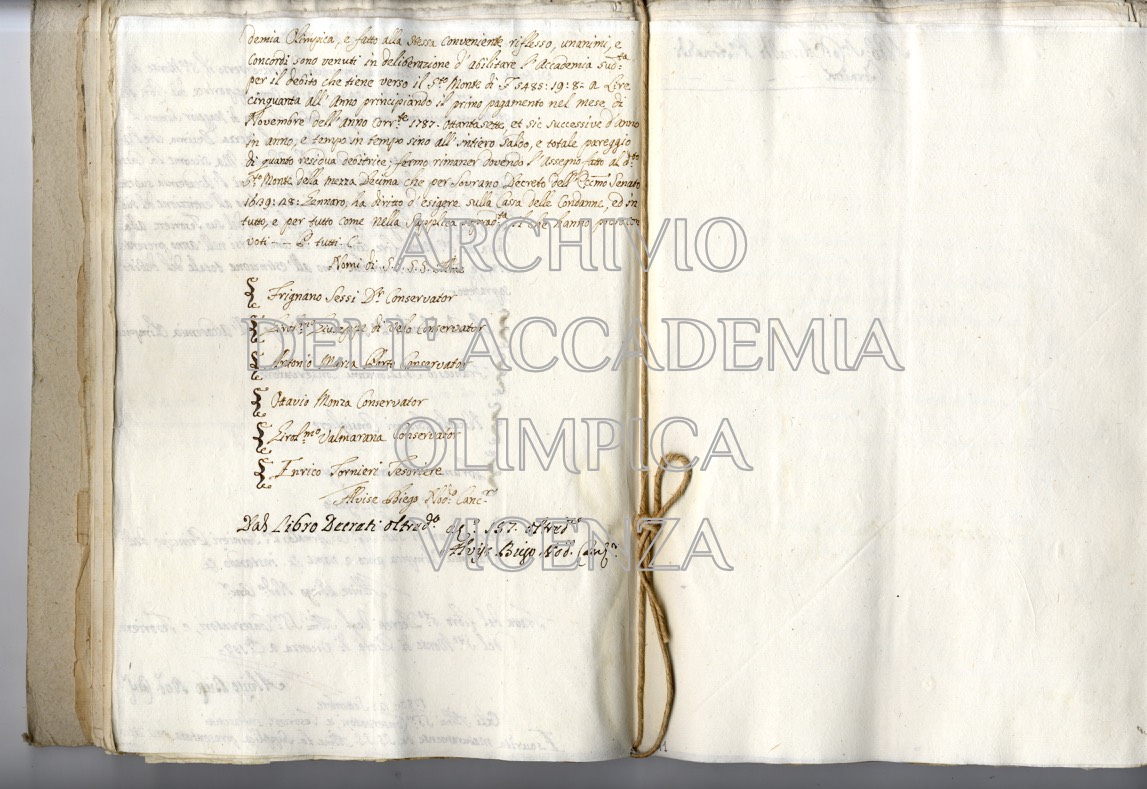 demia Olimpica, e fatto alla stessa conveniente riflesso, unanimi, e
Concordi sono venuti in deliberazione d'abilitare l'Accademia sud.ta
per il debito che tiene verso il S.to Monte di 5485:19:8- a Lire
cinquanta all'Anno principiando il primo pagamento nel mese di
Novembre dell'Anno Corr.te 1787. ottantasette, et sic successive d'Anno
in anno, e tempo in tempo sino all'intiero saldo, e totale pareggio
di quanto residua debitrice; fermo rimaner dovendo l'Assegno fatto al d.to
S.to Monte della mezza Decima che per Sovrano Decreto dell'Ecc.mo Senato
1639: 18: Zennaro, ha diritto d'esigere sulla Cassa delle Condanne, ed in
tutto, e per tutto come nella Supplica
voti
Nomi di S.S. S.S.
Frignano Sessi D.r Conservator
Giuseppe di Velo Conservator
Antonio Maria Conservator
Ottavio Monza Conservator
Valmarana Conservator
Enrico Tornieri Tesoriere
Alvise Biego Nod.o Canc.r
Dal Libro Decreti oltred.o 157.
Alvise Biego Nod. Canc.r
ARCHIVIO
DELL'ACCADEMIA
OLIMPICA
VICENZA